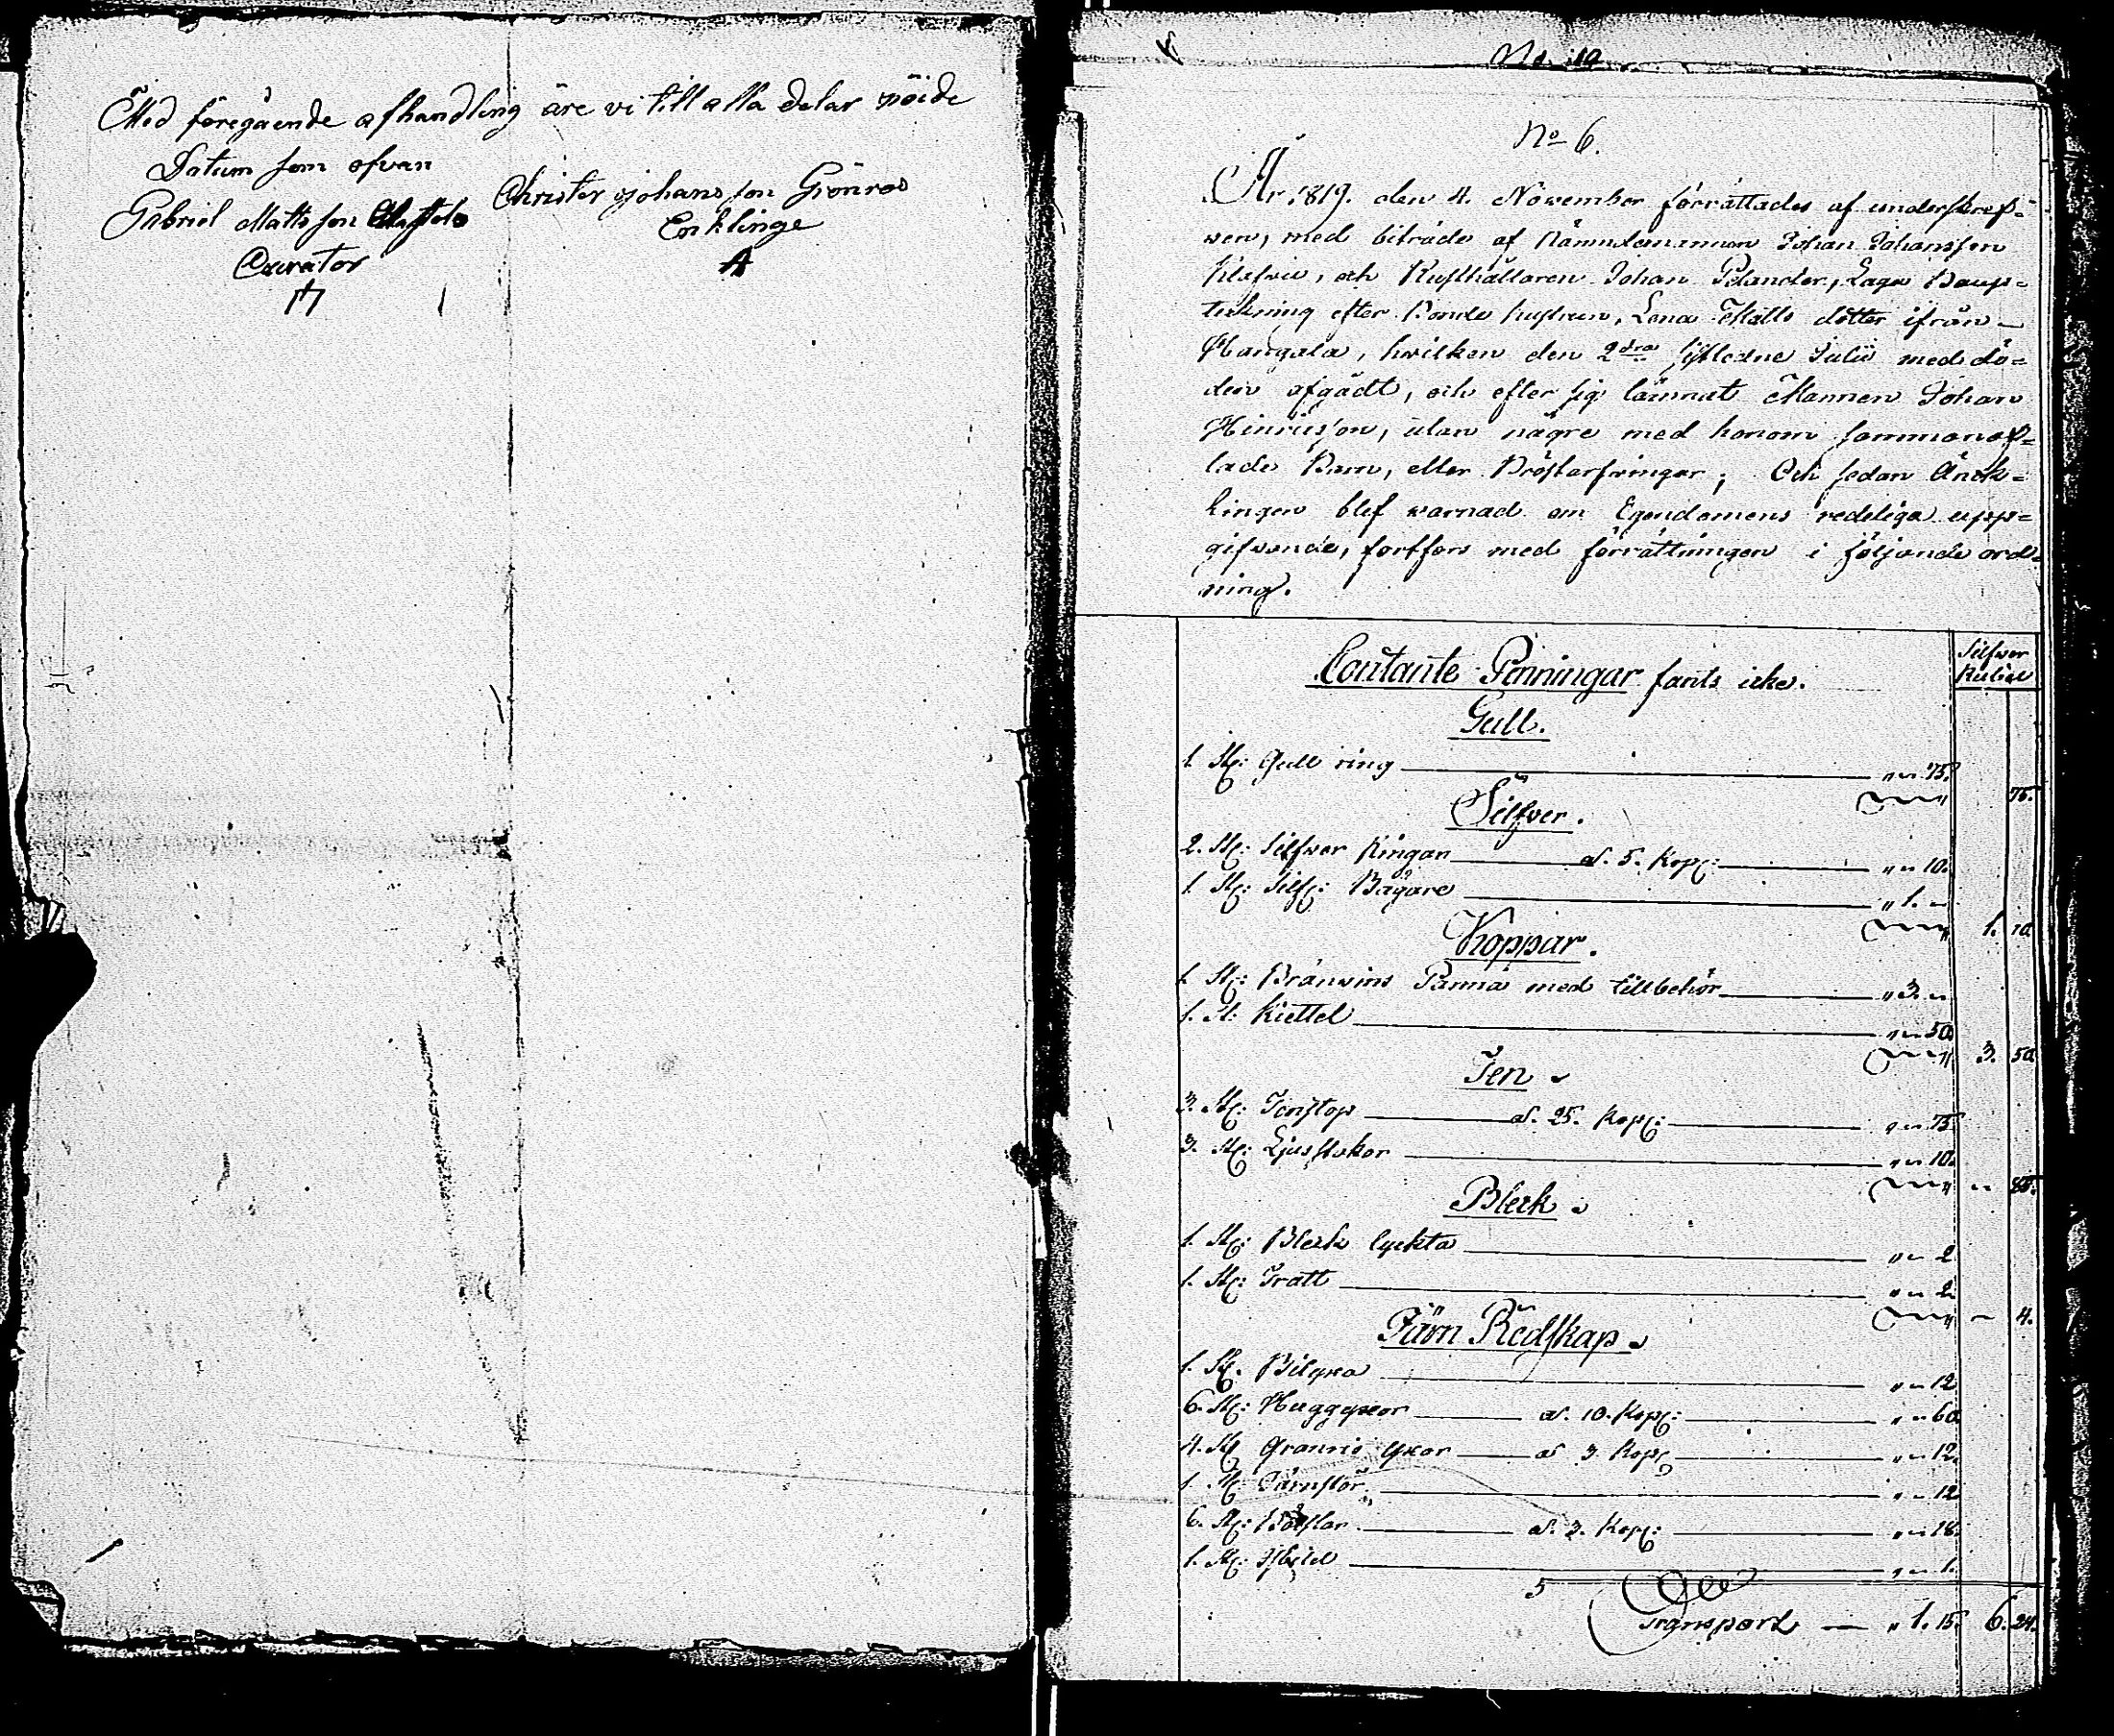 Med foregående afhandling äre vi till alla delar nöide
Datum som ofvan
Gabriel Mattsson
Curator
Christer Johansson Grönroos
Enklinge
No. 10
No 6.
År 1819. den 4. November förrättades af underskref=
wen, med biträde af Nämndemannen Johan Johansson
Klafwu, och Rusthållaren Johan Pelander, Laga Boup=
tekning efter Bonde hustrun, Lena Matts dotter ifrån
Hangala, hwilken den 2dra sistledne Julii med dö=
den afgådt, och efter sig lämnat Mannen Johan
Hinricsson, utan någre med honom sammanaf=
lade Barn, eller Bröstarfwingar; Och sedan Änck=
lingen blef warnad om Egendomens redeliga upp=
gifwande, fortfors med förrättningen i följande ord=
ning.
Silfwer
Rubel
Contante Penningar fants icke.
Gull.
1. St: Gull ring " " 75.
75.
Silfver.
2. St: Silfwer Ringar a. 5. Kop: " " 10.
1. St: Silf: Bägare " 1. "
1. 10
Koppar.
1. St: Bränwins Panna med tillbehör " 3. "
1. St: Kiettel " " 50
3. 50
Ten.
3. St: Tenstop a. 25. Kop: " " 75
3. St: Ljusstakar " " 10.
" 85.
Bleck.
1. St: Bleck lyckta " " 2
1. St: Tratt " " 2.
" 4.
Järn Redskap.
1. St: Bilyxa " " 12
6. St: Huggyxor a. 10. Kop: " " 60
4. St: Grannis yxor a 3 Kop: " " 12.
1. St: Järnstör " " 12
6. St: a. 3. Kop: " " 18.
1. St: " " 1.
5
Transport " 1. 15. 6. 24.